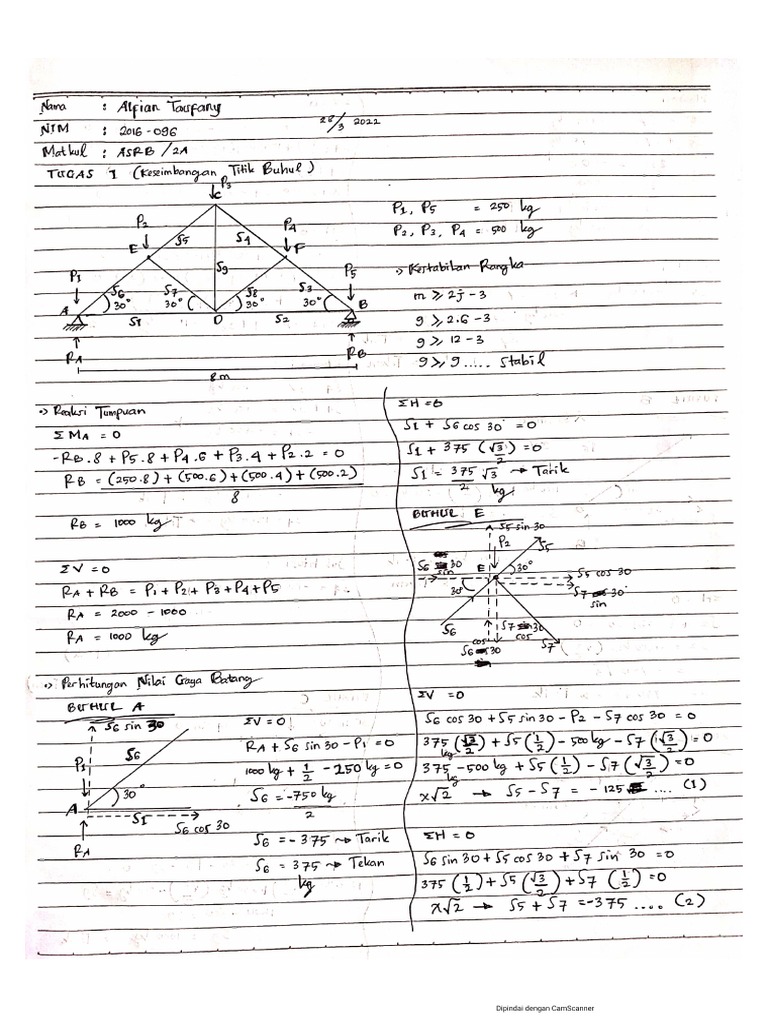 Nama : Alfian Taufany
NIM : 2016-096
28/3 2022
Matkul : ASRB /2A
TUGAS 1 (Keseimbangan Titik Buhul)
P3
C
P2
P4
E
S5
S4
F
P1
S9
P5
S6
S7
S8
S3
A
30°
30°
30°
30°
B
S1
D
S2
RA
RB
8 m
P1, P5 = 250 kg
P2, P3, P4 = 500 kg
Kestabilan Rangka
m ⩾ 2j - 3
9 ⩾ 2.6 - 3
9 ⩾ 12 - 3
9 ⩾ 9 ..... Stabil
Reaksi Tumpuan
Σ MA = 0
-RB.8 + P5.8 + P4.6 + P3.4 + P2.2 = 0
RB = (250.8) + (500.6) + (500.4) + (500.2)
8
RB = 1000 kg
ΣV = 0
RA + RB = P1 + P2 + P3 + P4 + P5
RA = 2000 - 1000
RA = 1000 kg
Perhitungan Nilai Gaya Batang
BUHUL A
S6 sin 30
S6
P1
30°
A
S1
S6 cos 30
RA
ΣV = 0
RA + S6 sin 30 - P1 = 0
1000 kg + 1/2 - 250 kg = 0
S6 = -750 kg
2
S6 = -375 → Tarik
S6 = 375 → Tekan
kg
ΣH = 0
S1 + S6 cos 30° = 0
S1 + 375 (√3/2) = 0
S1 = 375/2 √3 → Tarik
kg
BUHUL E
S5 sin 30
P2
S5
S6 sin 30
E
30°
S5 cos 30
30°
S7 sin 30°
S6
S7 cos 30
S6 cos 30
S7
ΣV = 0
S6 cos 30 + S5 sin 30 - P2 - S7 cos 30 = 0
375 kg (√3/2) + S5 (1/2) - 500 kg - S7 (√3/2) = 0
375 kg - 500 kg + S5 (1/2) - S7 (√3/2) = 0
x√2 → S5 - S7 = -125 .... (1)
ΣH = 0
S6 sin 30 + S5 cos 30 + S7 sin 30 = 0
375 (1/2) + S5 (√3/2) + S7 (1/2) = 0
x√2 → S5 + S7 = -375 .... (2)
Dipindai dengan CamScanner